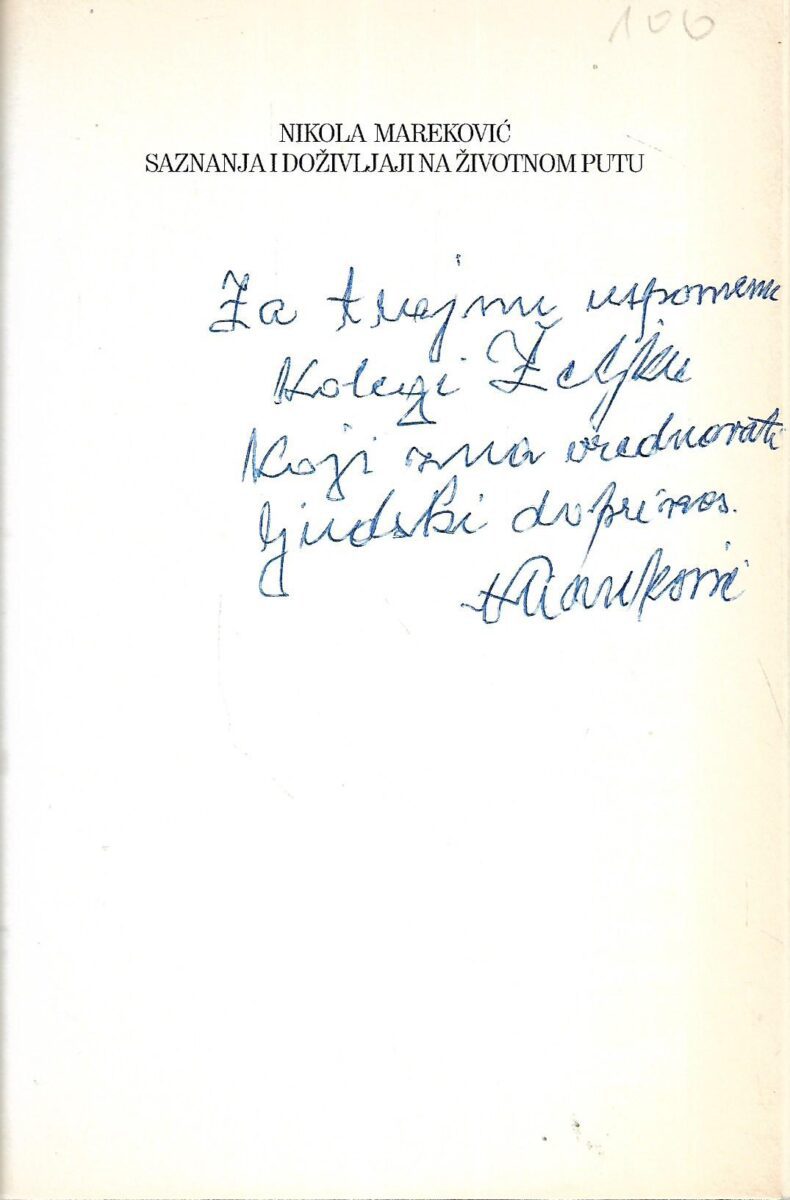 100
NIKOLA MAREKOVIĆ
SAZNANJA I DOŽIVLJAJI NA ŽIVOTNOM PUTU
Za trajnu uspomenu
Kolegi Željku
Koji zna vrednovati
ljudski doprinos.
NMareković